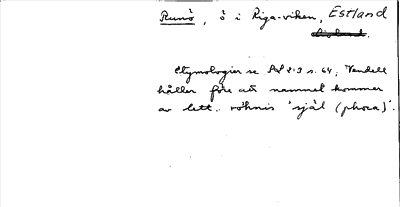 Runö, ö i Riga-viken, Estland
Etymologier se s. 64; Vendell
håller före att namnet kommer
av lett. rohnis 'själ (phoca)'.